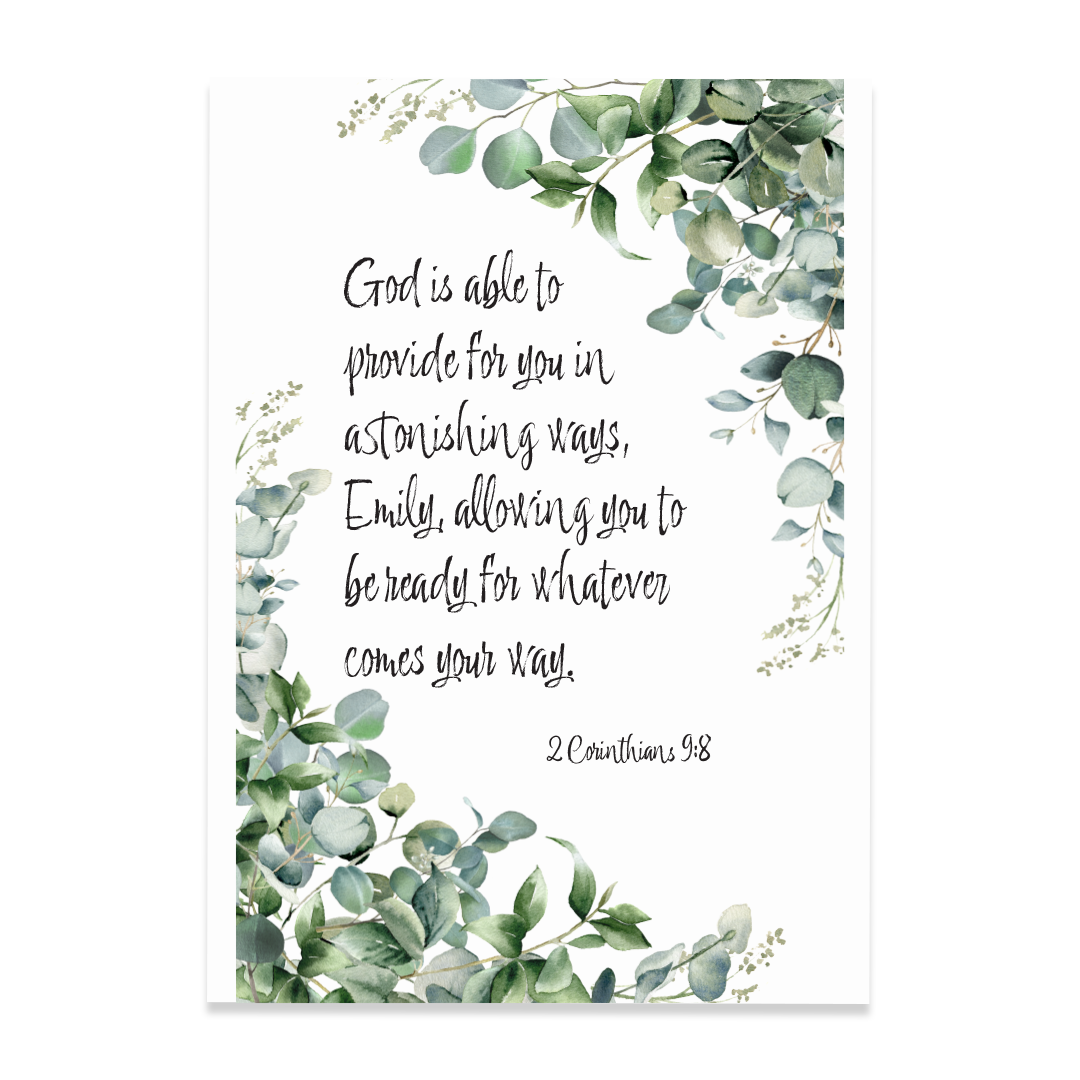 God is able to
provide for you in
astonishing ways,
Emily, allowing you to
be ready for whatever
comes your way.
2 Corinthians 9:8